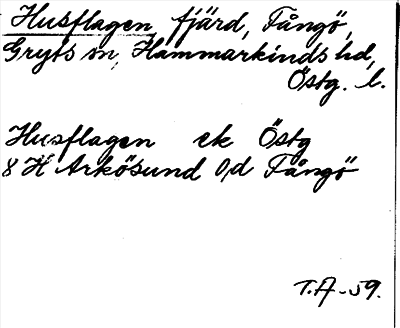 Husflagen fjärd, Fångö,
Gryts sn, Hammarkinds hd,
Östg. l.
Husflagen ek Östg
8 H Arkösund 0,d Fångö
T.A-59.